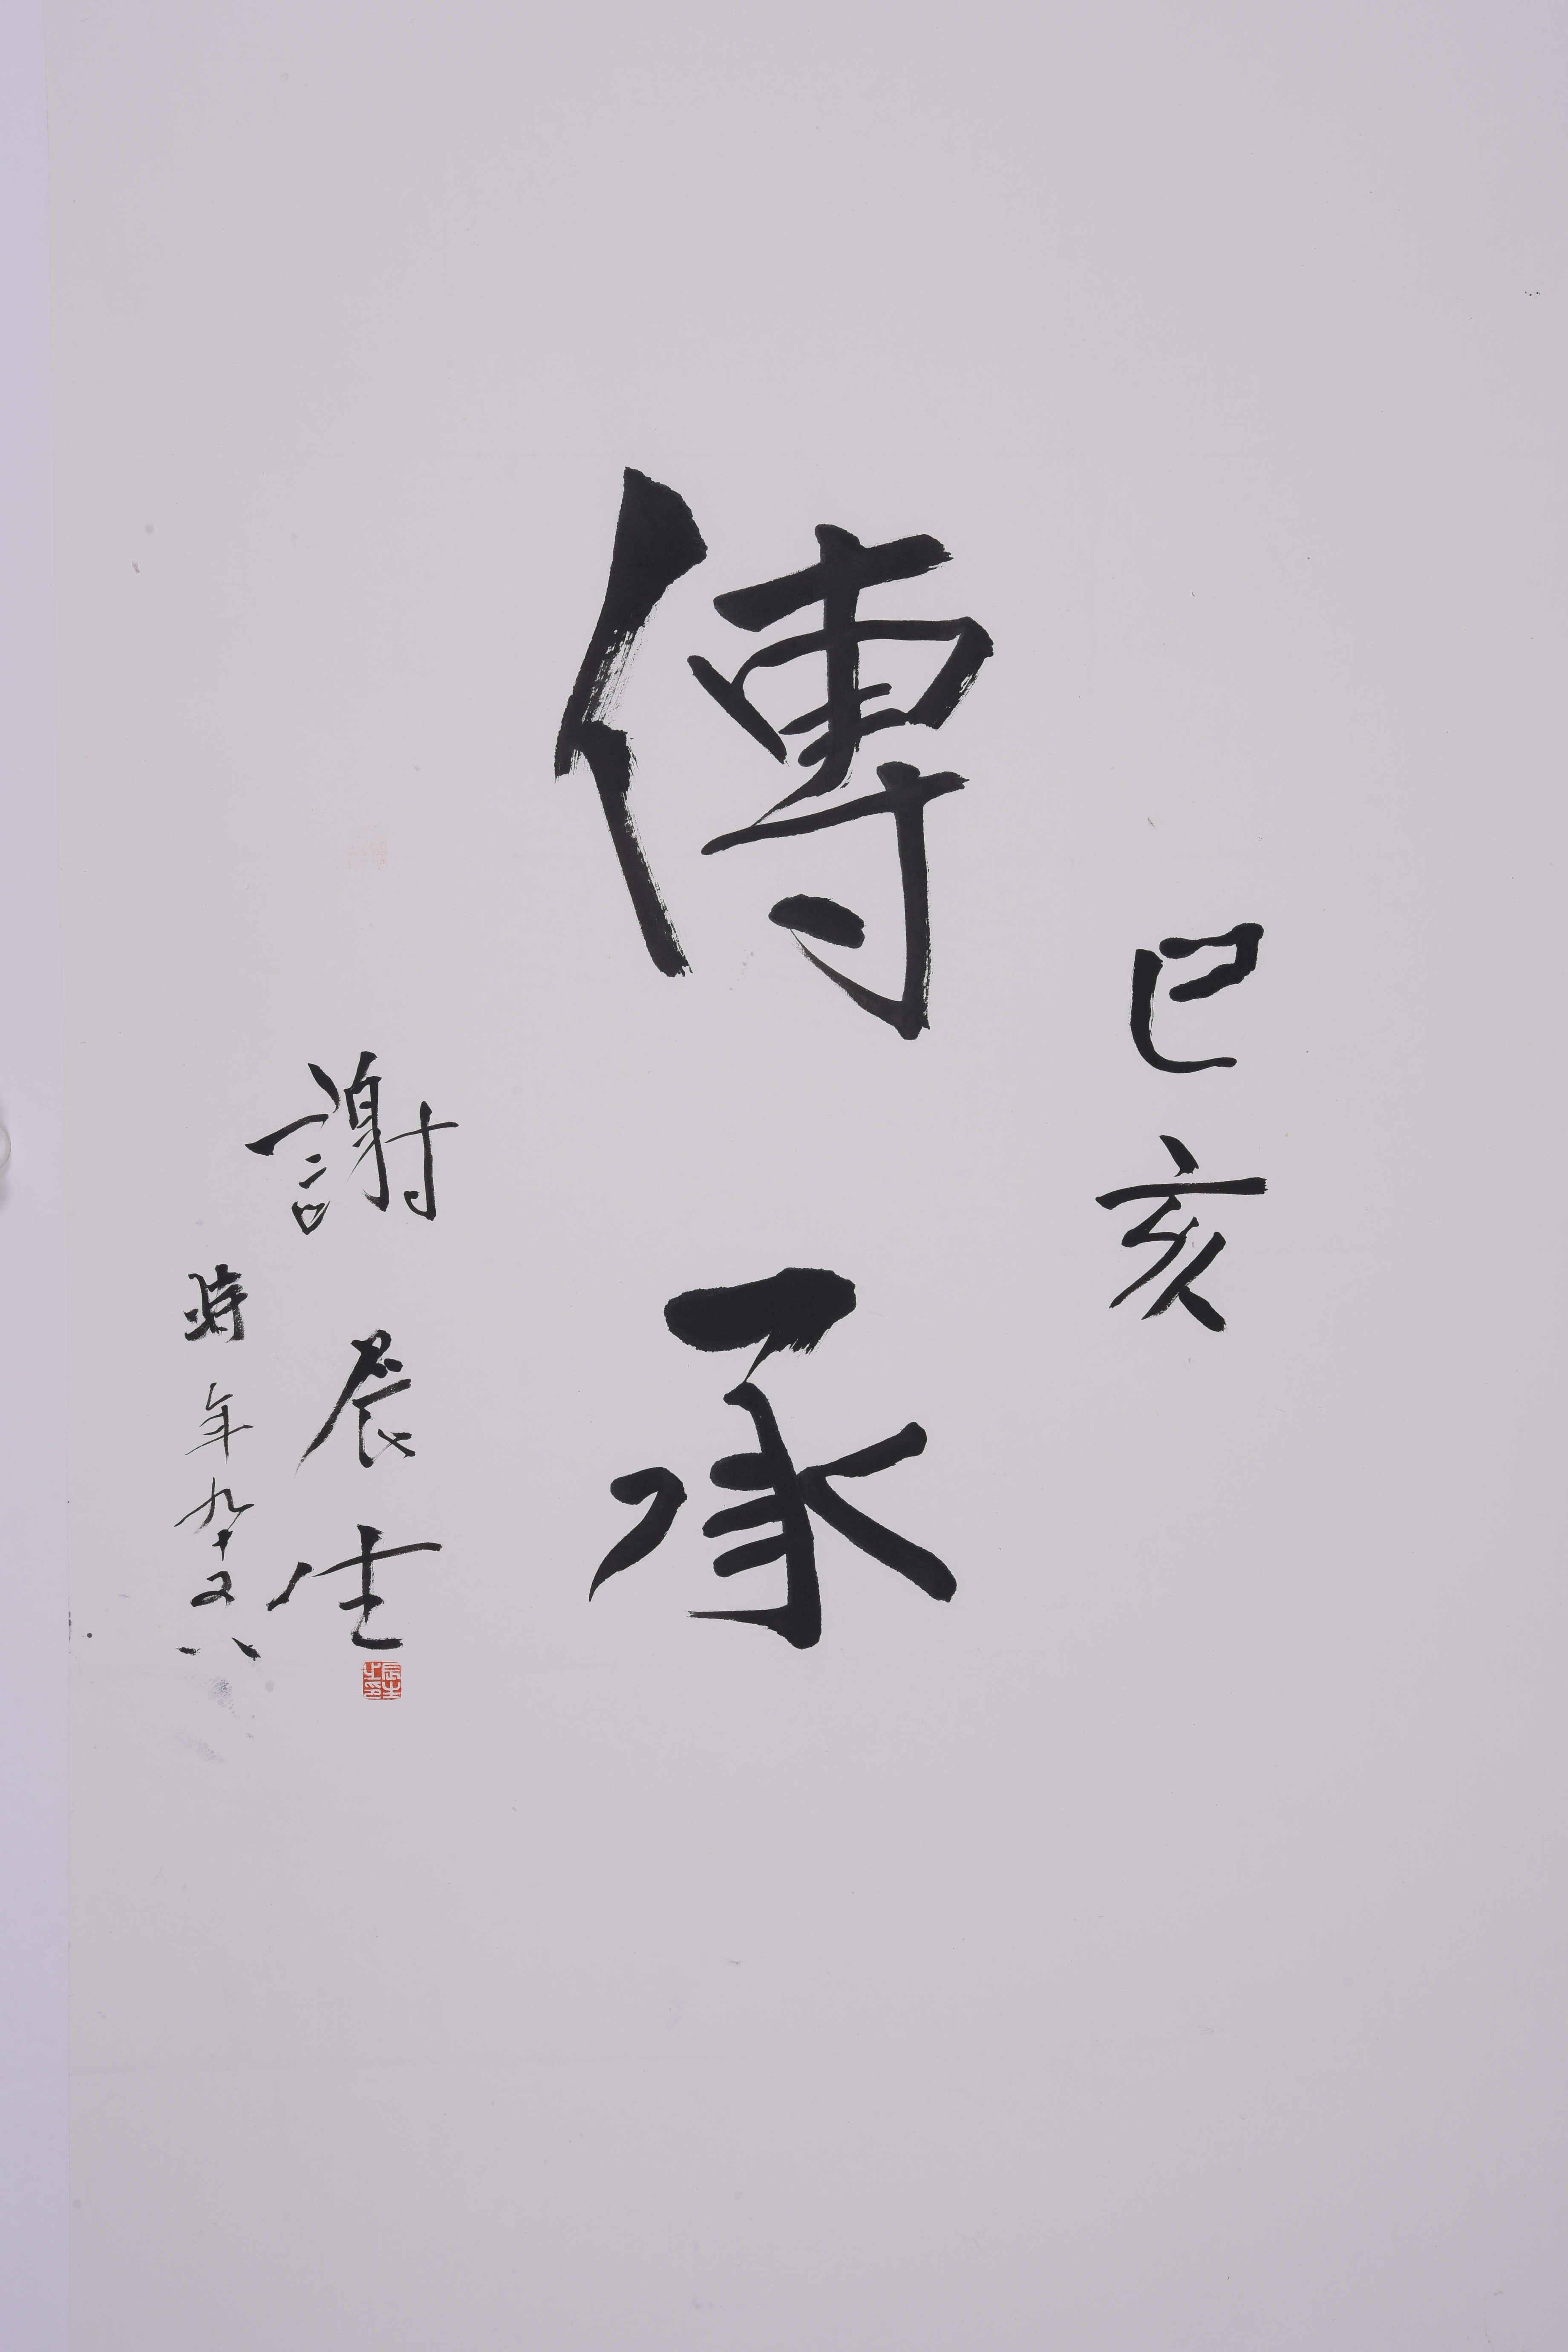 己亥
傳承
謝辰生
時年九十又八
辰生之印